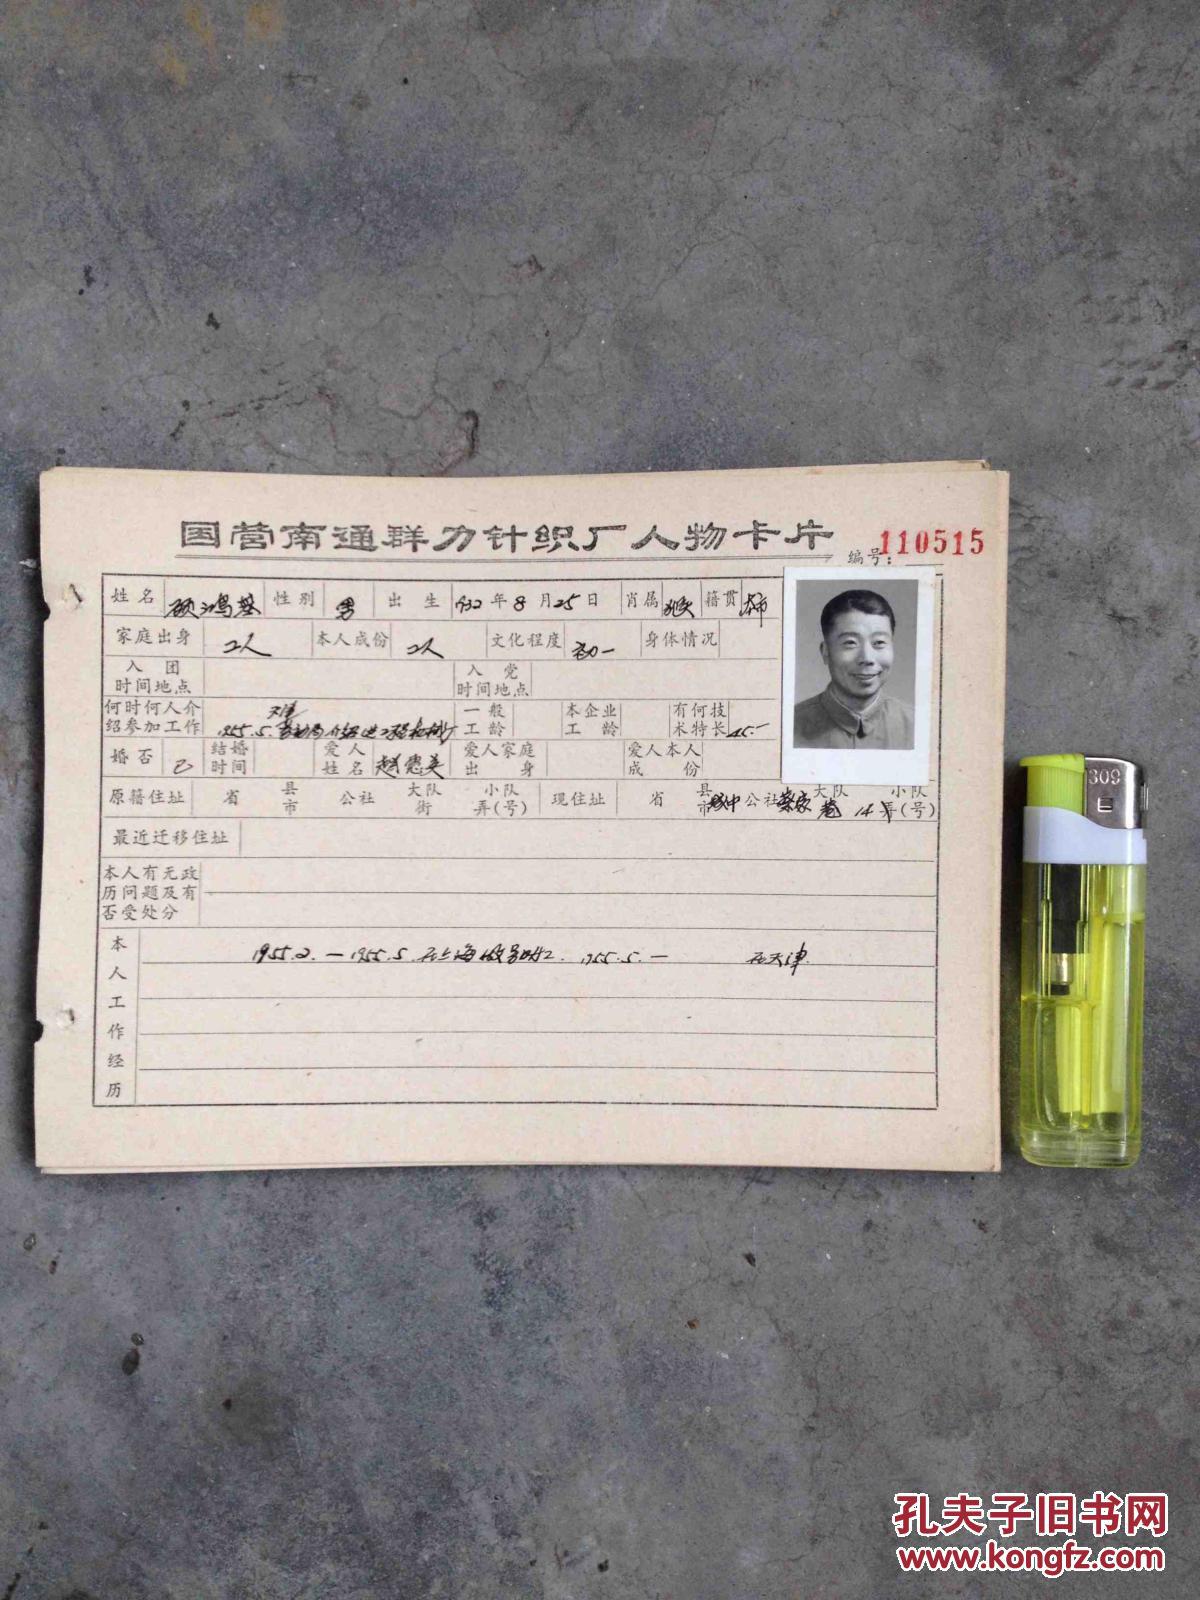 国营南通群力针织厂人物卡片
编号：110515
姓名 顾鸿基 性别 男 出生 1932年8月25日 肖属 猴 籍贯 本市
家庭出身 工人 本人成份 工人 文化程度 初一 身体情况
入团时间地点 入党时间地点
何时何人介绍参加工作 天津 1955.5. 劳动局介绍进 一般工龄 本企业工龄 有何技术特长
婚否 已 结婚时间 爱人姓名 赵惠英 爱人家庭出身 爱人本人成份
原籍住址 省 县市 公社 大队街 小队弄(号) 现住址 省 县市 城中公社 大队 巷 14 小队弄(号)
最近迁移住址
本人有无政历问题及有否受处分
本人工作经历
1955.2.—1955.5.在上海做 1955.5.— 在天津
309
孔夫子旧书网
www.kongfz.com